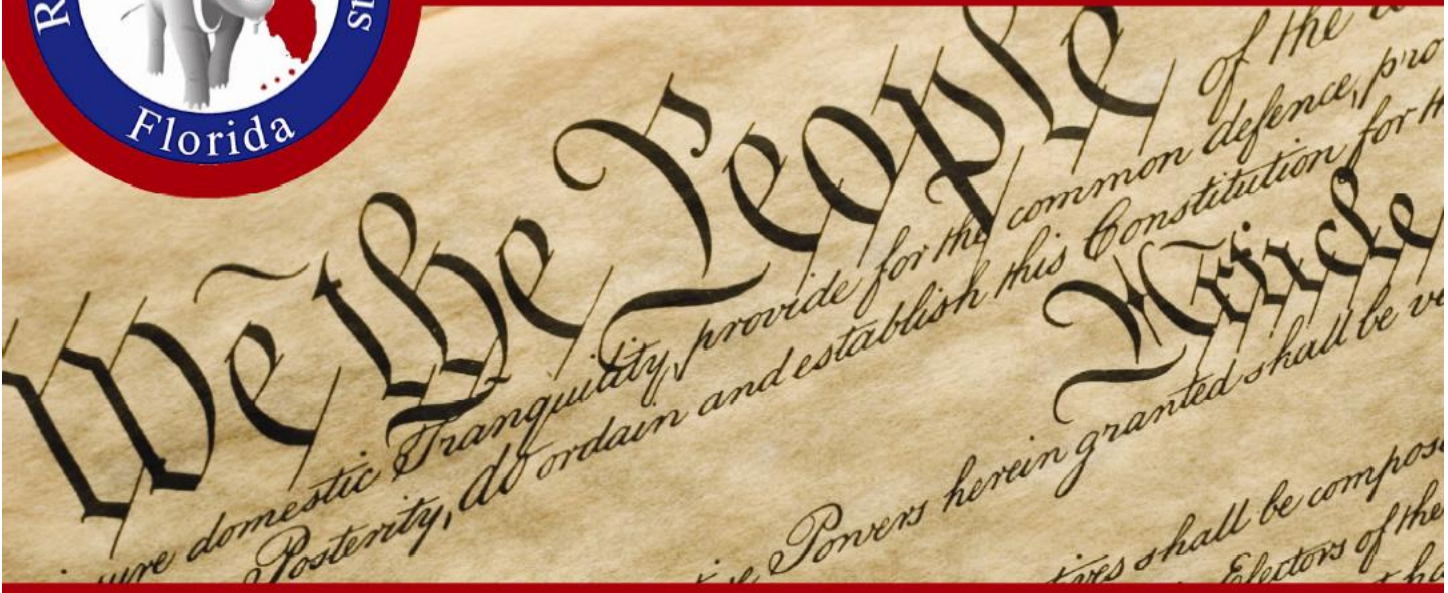 Florida
We the People
of the
sure domestic Tranquility, provide for the common defence, pro
Posterity, do ordain and establish this Constitution for th
Article
Powers herein granted shall be ve
tives shall be compos
Electors of the